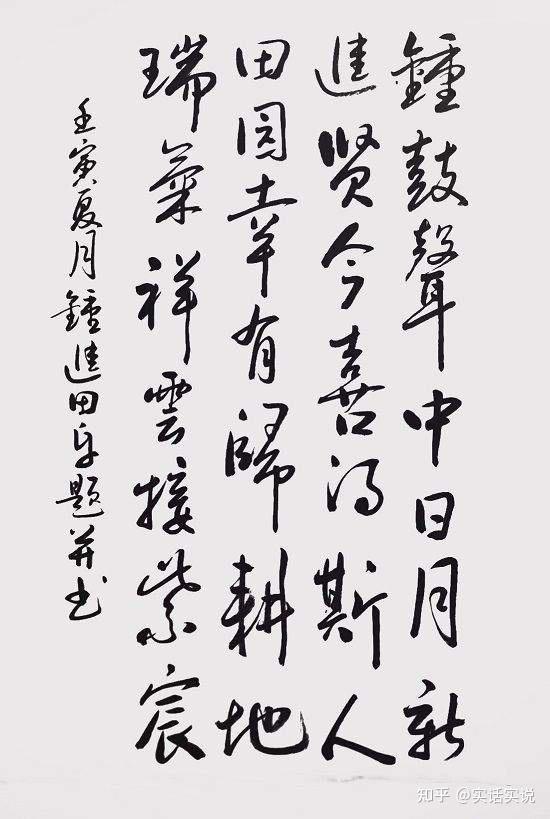 鍾鼓聲中日月新
進贤今喜得斯人
田園幸有歸耕地
瑞氣祥雲接紫宸
壬寅夏月鍾進田自题并书
知乎 @实话实说